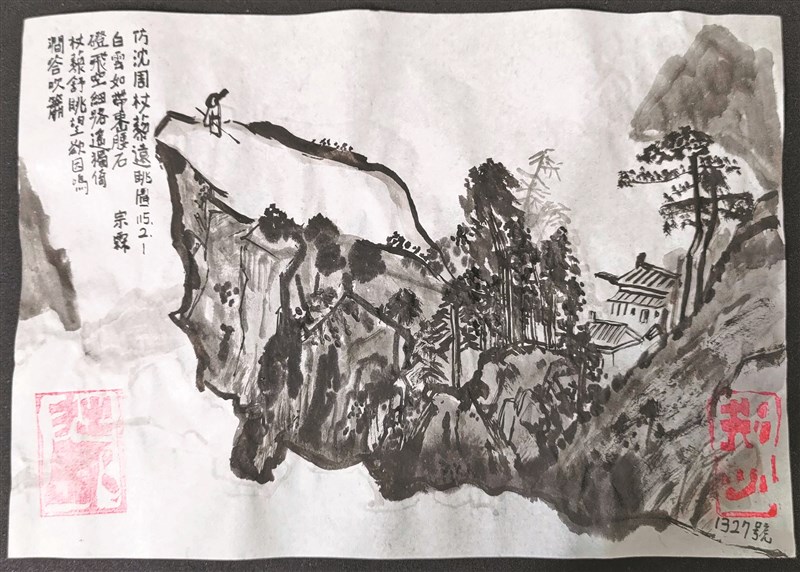 仿沈周杖藜遠眺圖 115.2.1
白雲如帶束山腰石 宗霖
磴飛空細路遙獨倚
杖藜舒眺望欲因鳴
澗答吹簫
1327號